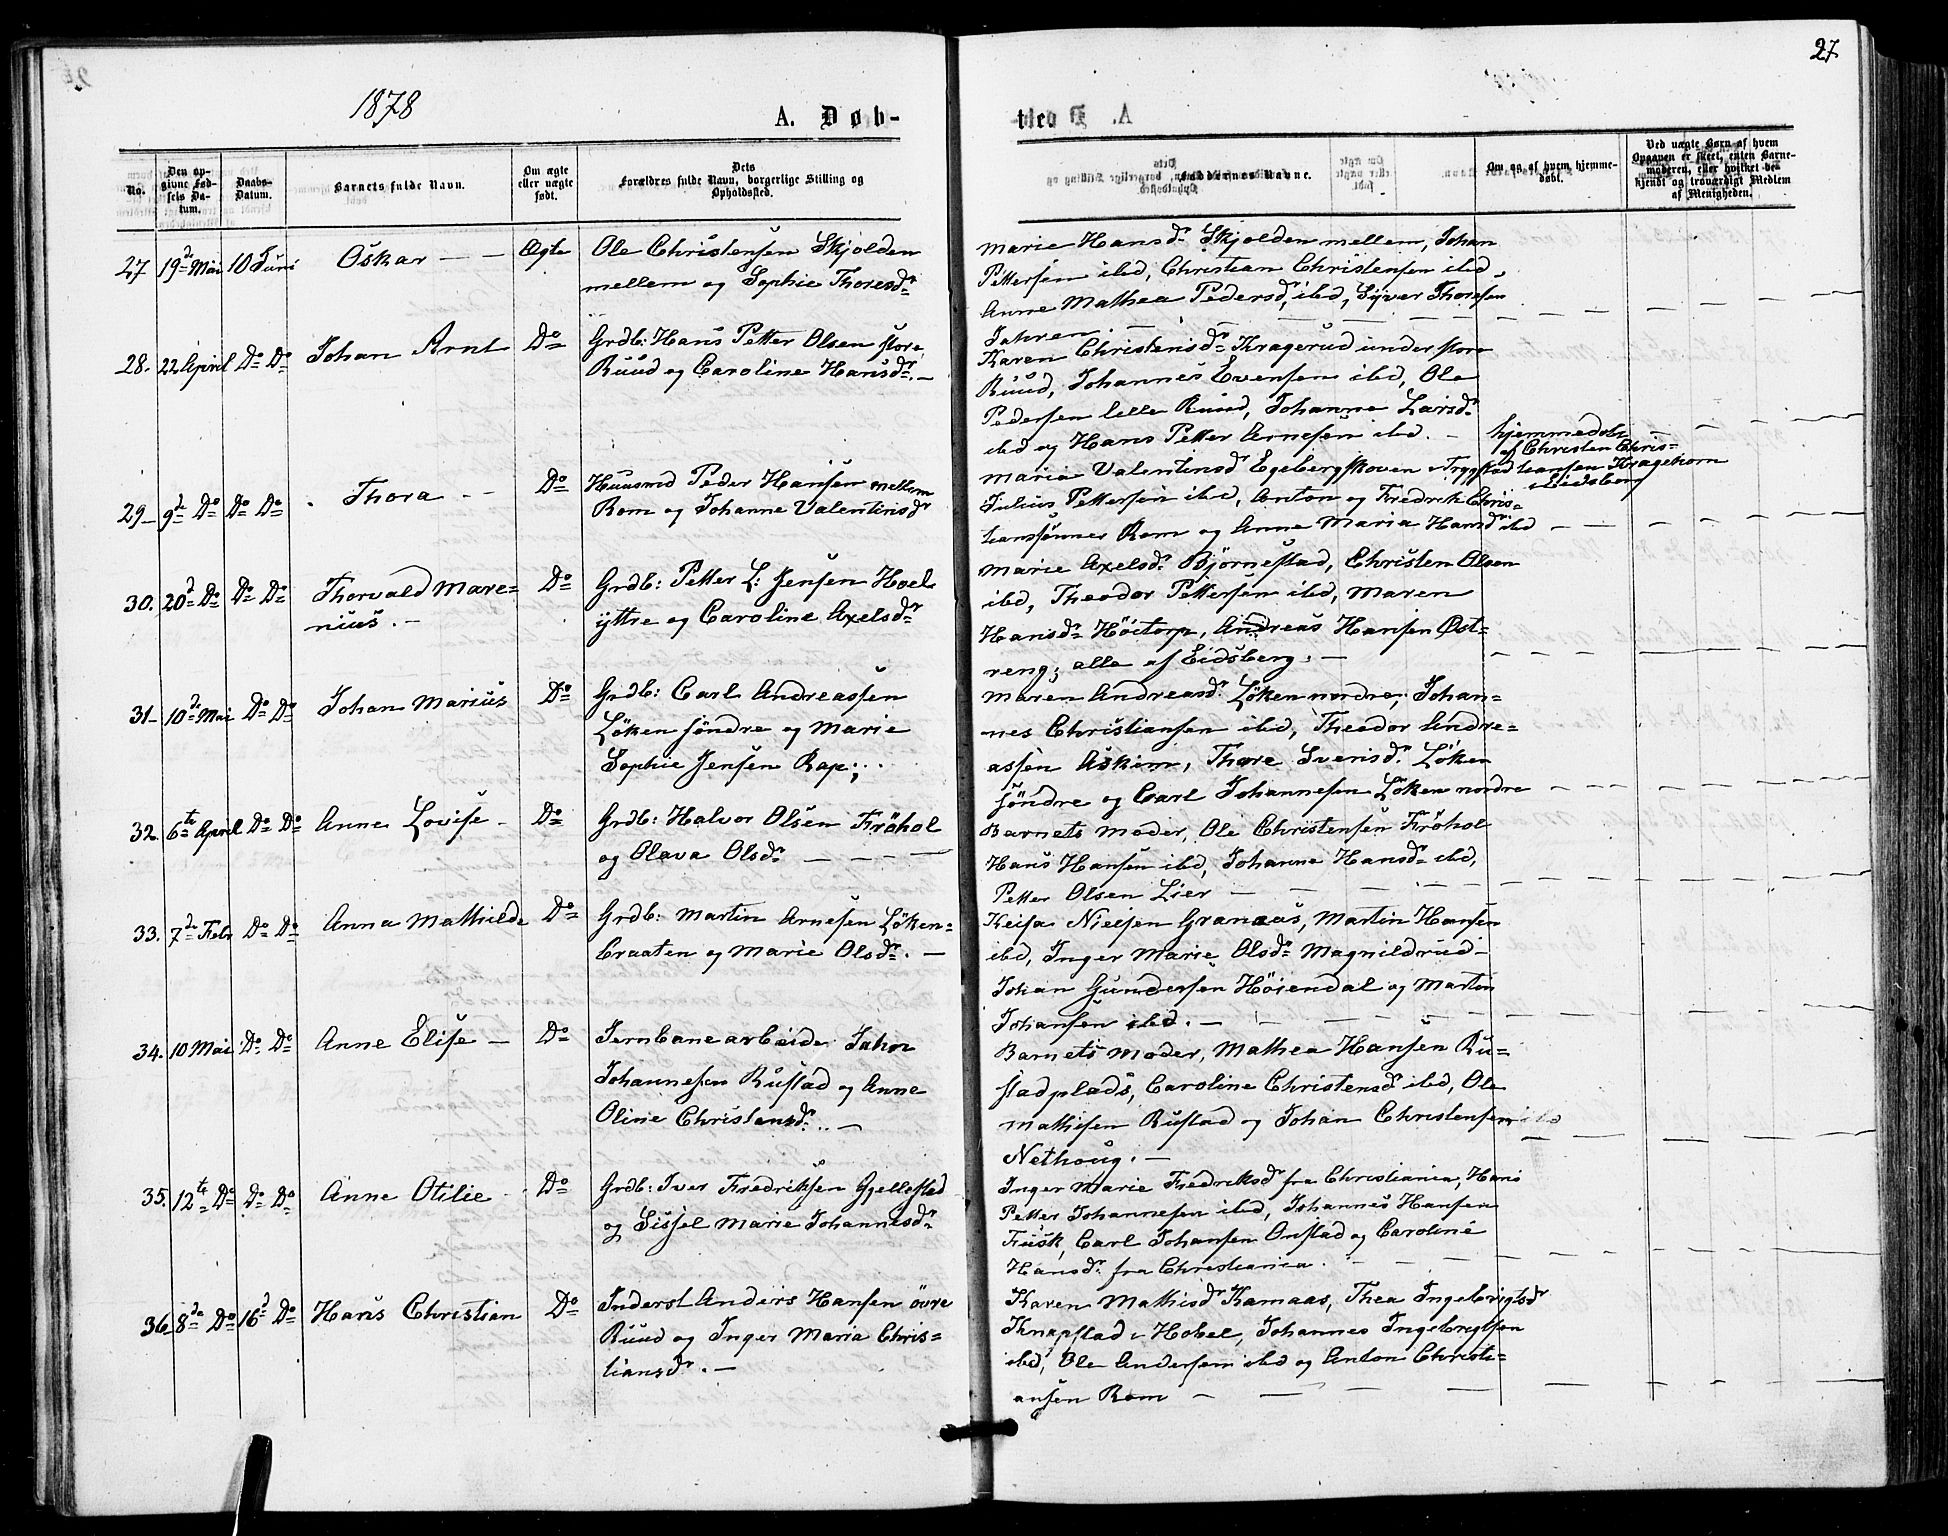 27.
1878
A. Døb-
No.
Den op-
givne Fød-
sels Da-
tum.
Daabs-
Datum.
Barnets fulde Navn.
Om ægte
eller uægte
født.
Dets
Forældres fulde Navn, borgerlige Stilling og
Opholdssted.
27 19de Mai 10 Juni Oskar — — Ægte Ole Christensen Skjolden
mellem og Sophie Thoresdr
28. 22 April Do Do Johan Arnt Do Grdb: Hans Petter Olsen store
Ruud og Caroline Hansdr. —
29— 9de Do Do Do Thora — — Do Huusmd Peder Hansen mellem
Rom og Johanne Valentinsdr
30. 20d Do Do Do Thorvald Mare=
nius. — Do Grdb: Petter L: Jensen Hoel
yttre og Caroline Axelsdr
31— 10de Mai Do Do Johan Marius Do Grdb: Carl Andreassen
Löken söndre og Marie
Sophie Jensen Rap;
32. 6te April Do Do Anne Lovise — Do Grdb: Halvor Olsen Fröhol
og Olava Olsdr — — — —
33. 7de Febr Do Do Anna Mathilde Do Grdb: Martin Arnesen Löken=
braaten og Marie Olsdr. —
34. 10 Mai Do Do Anne Elise — Do Jernbanearbeider Johan
Johannesen Rustad og Anne
Oline Christensdr. —
35. 12te Do Do Do Anne Otilie Do Grdb: Iver Fredriksen Gjellestad
og Sissel Marie Johannesdr
36. 8de Do 16d Do Hans Christian Do Inderst Anders Hansen övre
Ruud og Inger Maria Chris=
tiansdr. —
A. Døbte
Faddernes Navne.
Om og af hvem hjemme-
døbt.
Ved uægte Børn af hvem
Opgaven er skeet, enten Barne-
moderen, eller hvilket be-
kjendt og troværdigt Medlem
af Menigheden.
Marie Hansdr Skjolden mellem, Johan
Pettersen ibd, Christian Christensen ibd,
Anne Mathea Pedersdr ibd, Syver Thoresen
Jahren.
Karen Christensdr Kragerud under store
Ruud, Johannes Evensen ibd, Ole
Pedersen lelle Ruud, Johanne Larsdr
ibd og Hans Petter Arnesen ibd. —
hjemmedøbt
af Christen Chris=
tiansen Kragehorn
i Eidsberg
Maria Valentinsdr Egebergskoven i Trygstad
Julius Pettersen ibd, Anton og Fredrik Chris=
tianssønner Rom og Anne Maria Hansdr ibd
Marie Axelsdr Björnestad, Christen Olsen
ibd, Theodor Pettersen ibd, Maren
Hansdr Höitorp, Andreas Hansen Øst=
reng; alle af Eidsberg. —
Maren Andreasdr Löken nordre, Johan=
nes Christiansen ibd, Theodor Andre=
assen Askim, Thore Svensdr Löken
söndre og Carl Johannesen Löken nordre
Barnets Moder, Ole Christensen Fröhol
Hans Hansen ibd, Johanne Hansdr ibd,
Petter Olsen Lier —
Keisa Nielsen Granaas, Martin Hansen
ibd, Inger Marie Olsdr Magnildrud
Johan Gundersen Höiendal og Martin
Johansen ibd. —
Barnets Moder, Mathea Hansen Ru=
stadplads, Caroline Christensdr ibd, Ole
Mathisen Rustad og Johan Christensen ibd
Nethoug. —
Inger Marie Fredriksdr fra Christiania, Hans
Petter Johannesen ibd, Johannes Hansen
Fusk, Carl Johansen Onstad og Caroline
Hansdr fra Christiania.
Karen Mathisdr Kamaas, Thea Ingebrigtsdr
Knapstad i Hobel, Johannes Ingebrigtsen
ibd, Ole Andersen ibd og Anton Christi=
ansen Rom —